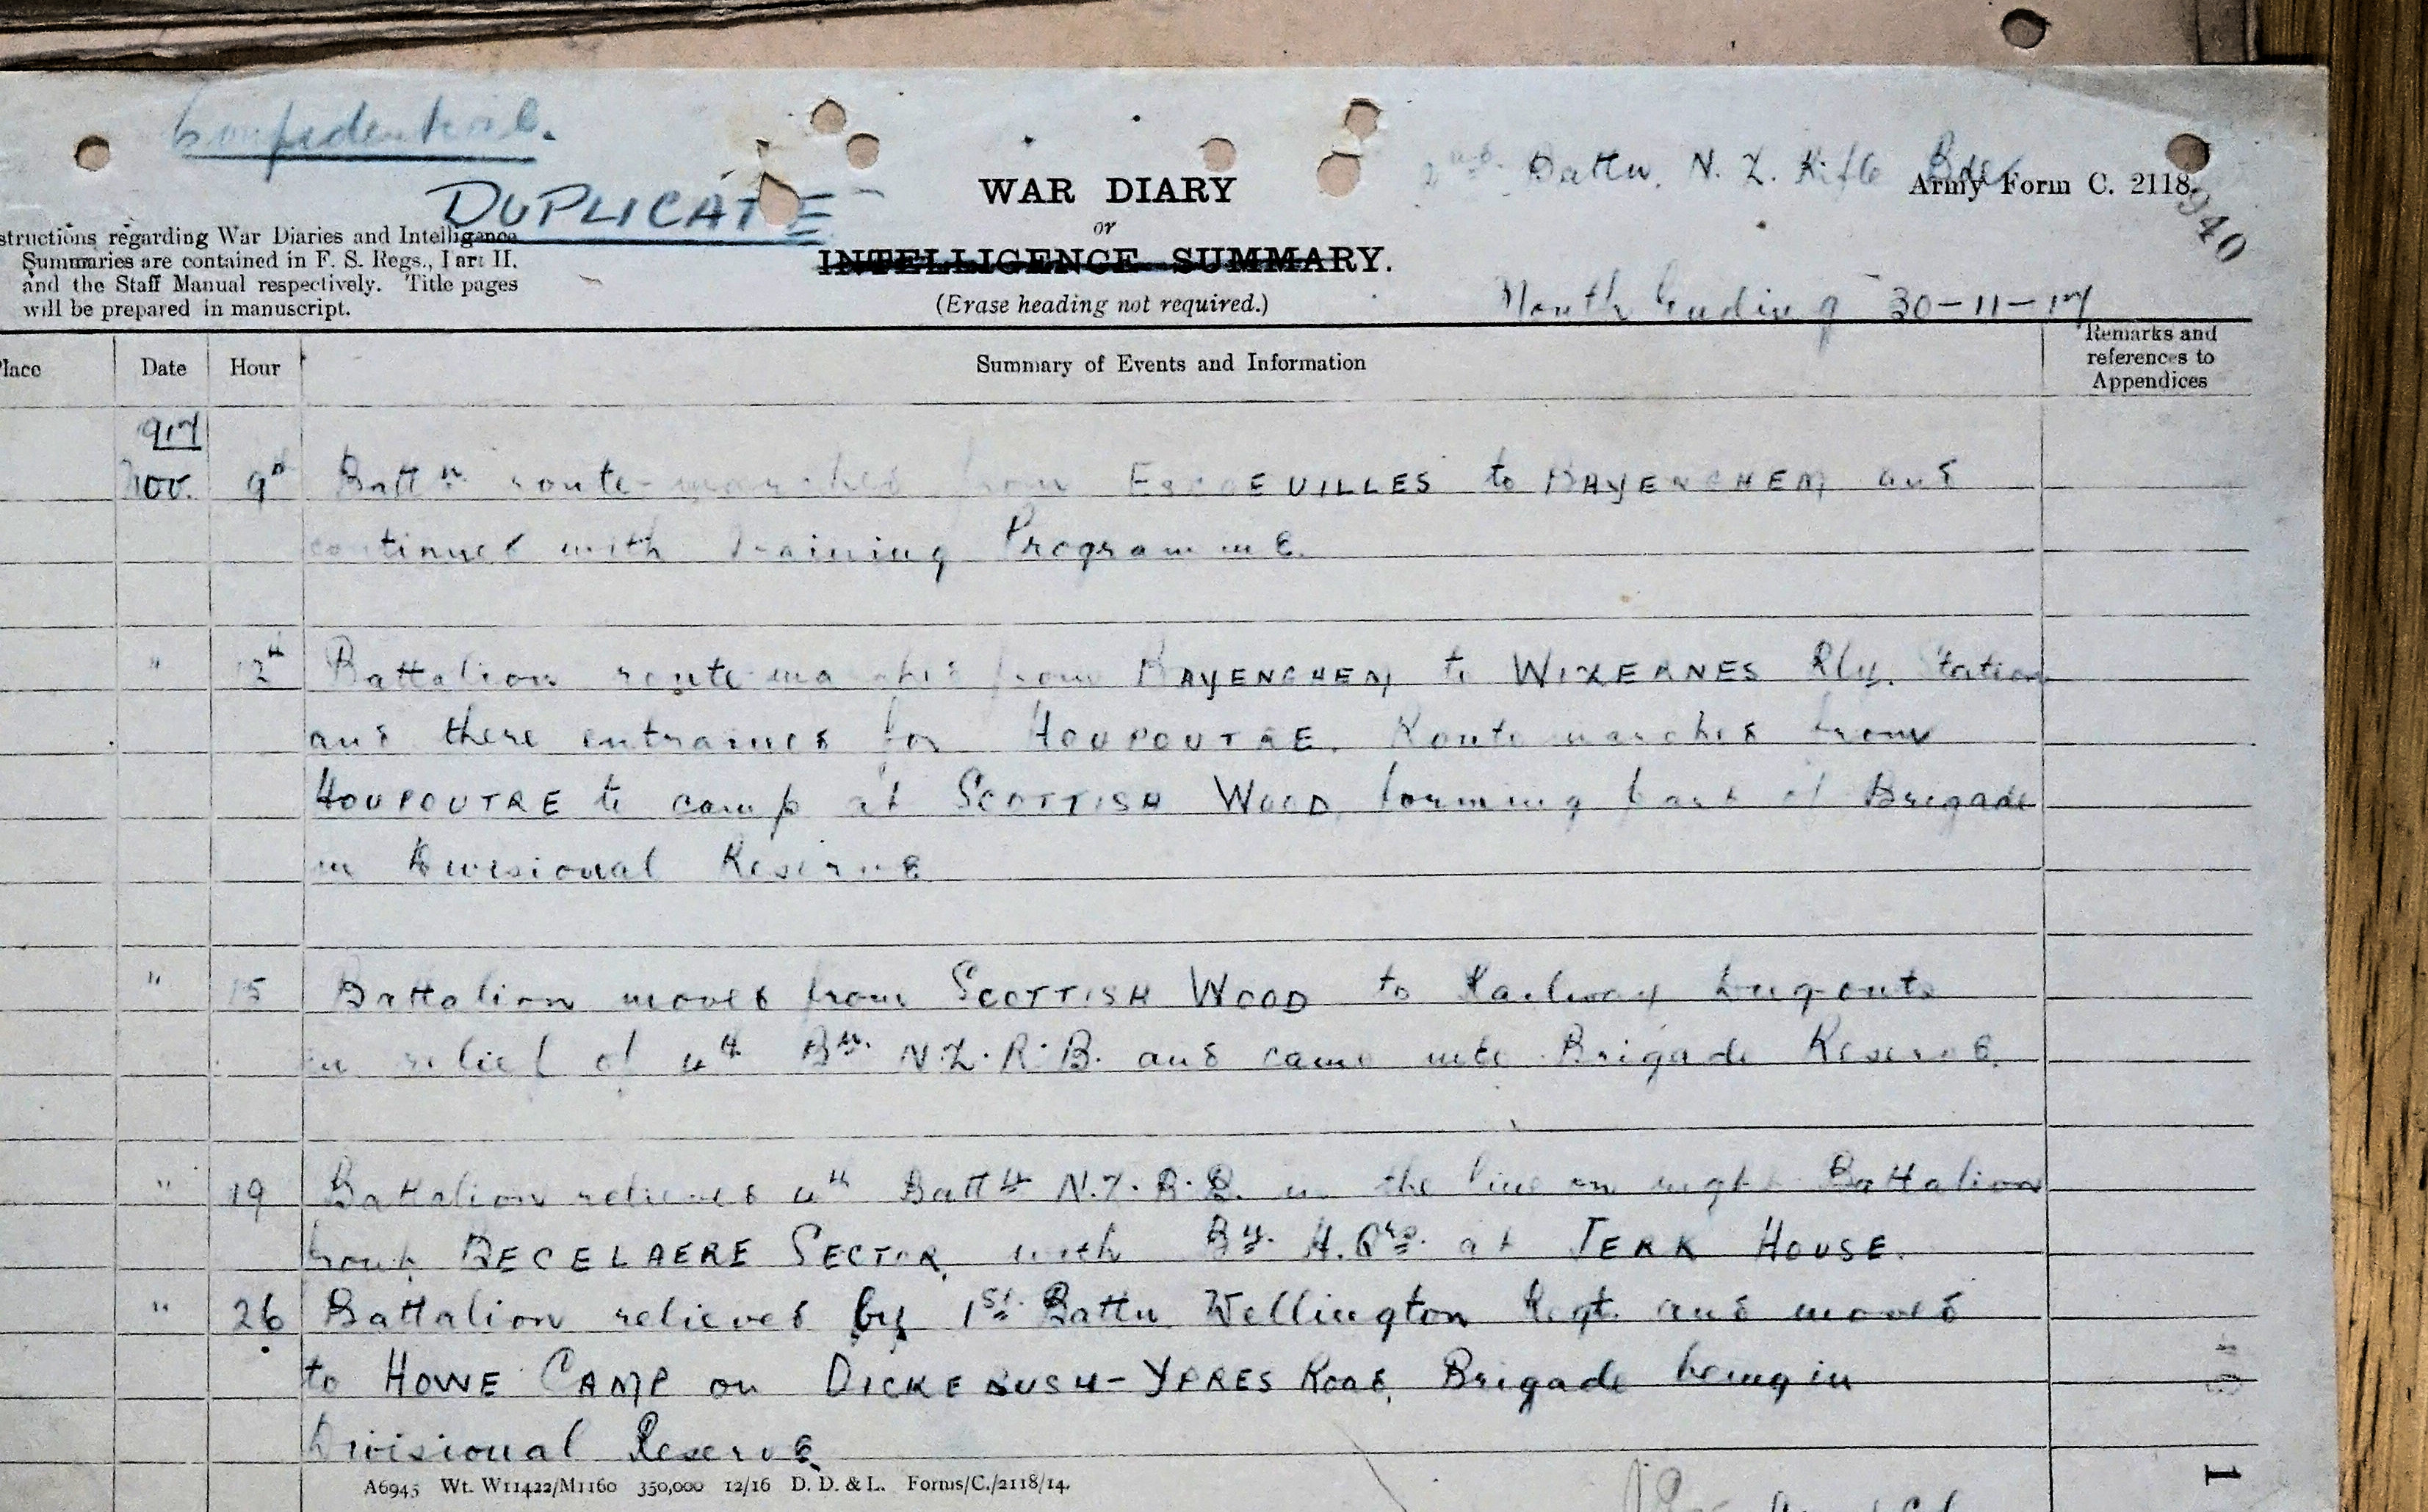 Confidential.
DUPLICATE
WAR DIARY
or
INTELLIGENCE SUMMARY.
(Erase heading not required.)
2nd Battn. N. Z. Rifle Bde
Army Form C. 2118.
940
structions regarding War Diaries and Intelligence
Summaries are contained in F. S. Regs., Part II.
and the Staff Manual respectively. Title pages
will be prepared in manuscript.
Month Ending 30-11-17
lace Date Hour Summary of Events and Information Remarks and
references to
Appendices
917
Nov. 9th Battn route-marched from ESCOEUILLES to BAYENGHEM and
continued with Training Programme.
" 12th Battalion route marched from BAYENGHEM to WIZERNES Rly. Station
and there entrained for HOUPOUTRE. Route marched from
HOUPOUTRE to camp at SCOTTISH WOOD forming part of Brigade
in Divisional Reserve
" 15 Battalion moved from SCOTTISH WOOD to Railway Dugouts
in relief of 4th Bn. N.Z.R.B. and came into Brigade Reserve.
" 19 Battalion relieved 4th Battn N.Z.R.B. in the line on right Battalion
front BECELAERE SECTOR, with Bn. H.Qrs. at JERK HOUSE.
" 26 Battalion relieved by 1st. Battn Wellington Regt. and moved
to HOWE CAMP on DICKEBUSH-YPRES Road, Brigade being in
Divisional Reserve.
A6945 Wt. W11422/M1160 350,000 12/16 D. D. & L. Forms/C./2118/14.